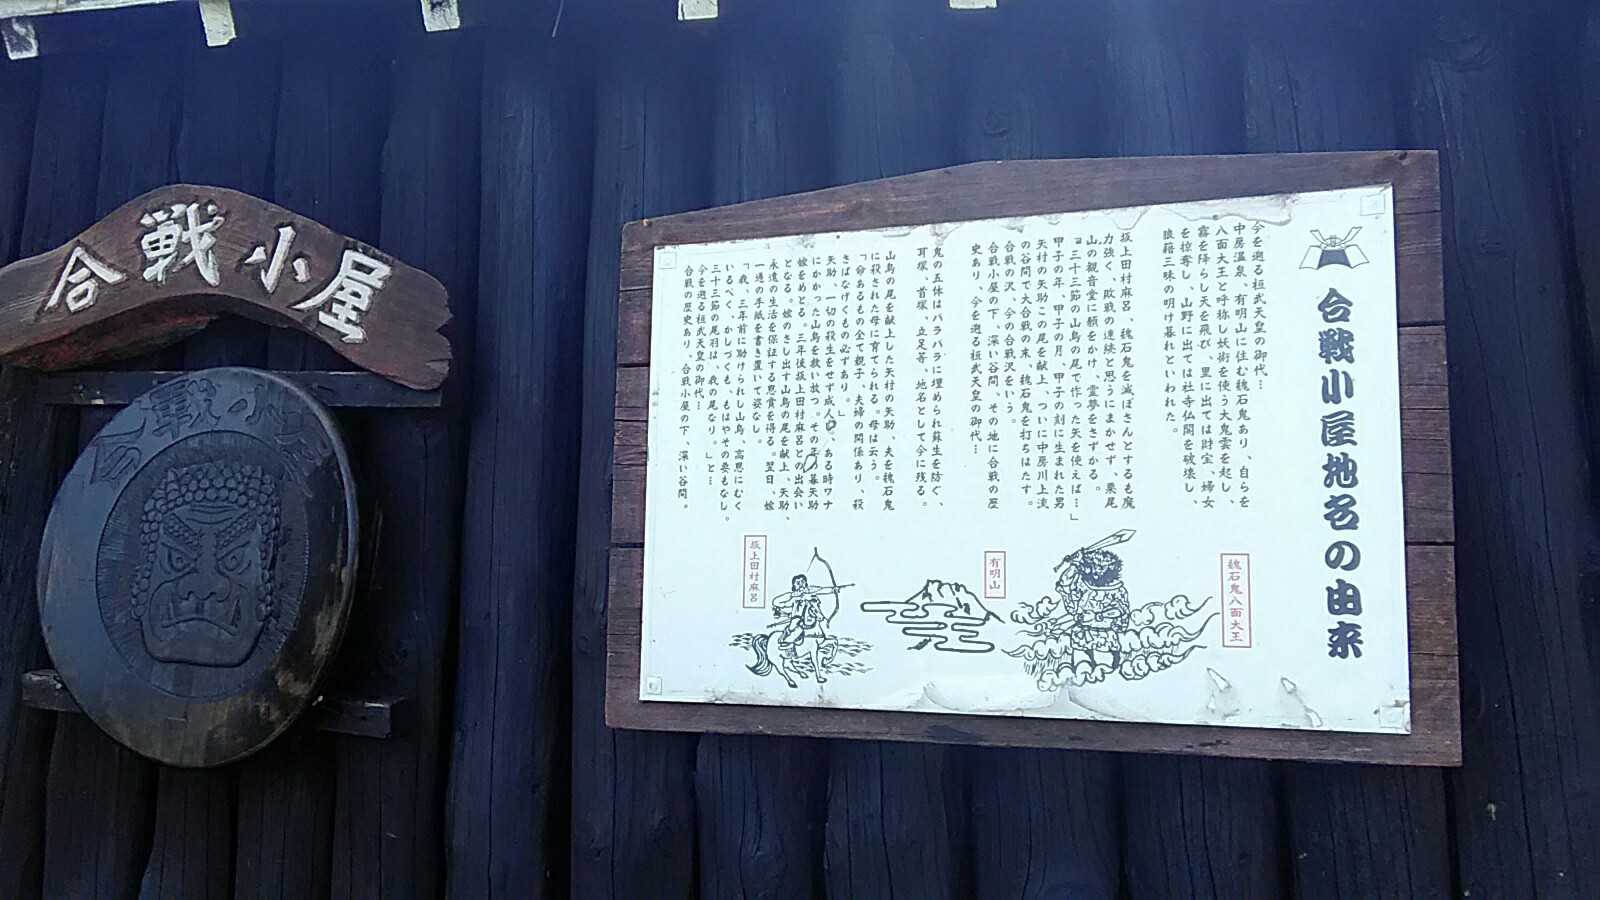 合戦小屋
合戦小屋地名の由来
今を遡る桓武天皇の御代…
中房温泉、有明山に住む魏石鬼あり、自らを
八面大王と呼称し妖術を使う大鬼雲を起し、
霧を降らし天を飛び、里に出ては財宝、婦女
を掠奪し、山野に出ては社寺仏閣を破壊し、
狼藉三昧の明け暮れといわれた。
坂上田村麻呂、魏石鬼を滅ぼさんとするも魔
力強く、敗戦の連続と思うにまかせず、栗尾
山の観音堂に願をかけ、霊夢をさずかる。
「三十三節の山鳥の尾で作った矢を使えば…」
甲子の年、甲子の月、甲子の刻に生まれた男
矢村の矢助この尾を献上、ついに中房川上流
の谷間で大合戦の末、魏石鬼を打ちはたす。
合戦の沢、今の合戦沢をいう。
合戦小屋の下、深い谷間、その地に合戦の歴
史あり、今を遡る桓武天皇の御代…
鬼の五体はバラバラに埋められ蘇生を防ぐ、
耳塚、首塚、立足等、地名として今に残る。
山鳥の尾を献上した矢村の矢助、夫を魏石鬼
に殺された母に育てられる。母は云う。
「命あるもの全て親子、夫婦の関係あり、殺
さばなげくもの必ずあり。」
矢助、一切の殺生をせず成人し、ある時ワナ
にかかった山鳥を救い放つ。その年の暮矢助
嫁をめとる。三年後坂上田村麻呂との出会い
となる。嫁のさし出す山鳥の尾を献上、矢助、
永遠の生活を保証する恩賞を得る。翌日、嫁
一通の手紙を書き置いて姿なし。
「我、三年前に助けられし山鳥、高恩にむく
いるべく、かしづくも、もはやその要もなし。
三十三節の尾羽は、我の尾なり。」と…
今を遡る桓武天皇の御代…
合戦の歴史あり、合戦小屋の下、深い谷間。
魏石鬼八面大王
有明山
坂上田村麻呂